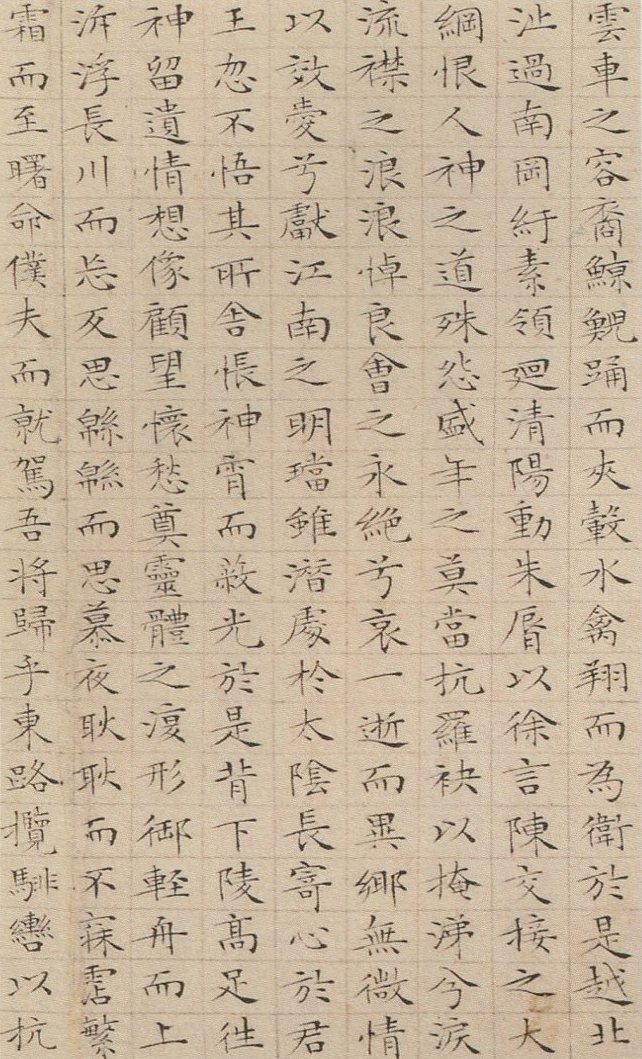 雲車之容裔鯨鯢踊而夾轂水禽翔而為衛於是越北
沚過南岡紆素領廻清陽動朱脣以徐言陳交接之大
綱恨人神之道殊怨盛年之莫當抗羅袂以掩涕兮淚
流襟之浪浪悼良會之永絕兮哀一逝而異鄉無微情
以效愛兮獻江南之明璫雖潛處於太陰長寄心於君
王忽不悟其所舍悵神宵而蔽光於是背下陵高足徃
神留遺情想像顧望懷愁冀靈體之復形御軽舟而上
泝浮長川而忘反思緜緜而思慕夜耿耿而不寐霑繁
霜而至曙命僕夫而就駕吾將歸乎東路攬騑轡以抗